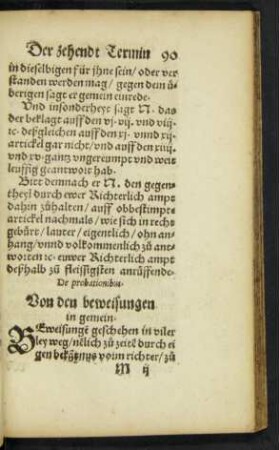 Der zehendt Termin 90
in dieselbigen für jhne sein/ oder ver
standen werden mag/ gegen dem ü-
berigen sagt er gemein einrede.
Vnd insonderheyt sagt N. das
der beklagt auff den vj. vij. vnd viij.
ꝛc. deßgleichen auff den xj. vnnd xij.
artickel gar nicht/ vnd auff den xiiij.
vnd xv. gantz vngereumpt vnd weit
leuffig geantwort hab.
Bitt demnach er N. den gegen-
theyl durch ewer Richterlich ampt
dahin zůhalten/ auff obbestimpte
artickel nachmals/ wie sich in recht
gebürt/ lauter/ eigentlich/ ohn an-
hang/ vnnd volkommenlich zů ant-
worten ꝛc. euwer Richterlich ampt
deßhalb zů fleissigsten anrüffende.
De probationibus.
Von den beweisungen
in gemein.
BEweisunge geschehen in viler
ley weg/ nēlich zů zeitē durch ei
gen bekātnus vorm richter/ zů
M ij